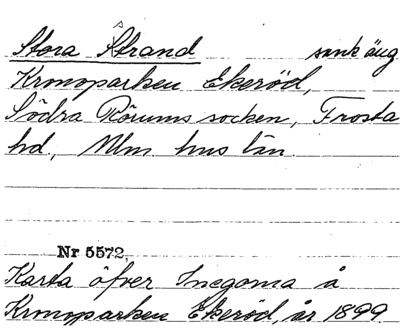 Stora Strand sank äng
Kronoparken Ekeröd,
Södra Rörums socken, Frosta
hd., Mlm hus län.
Nr 5572.
Karta öfver Inegorna å
Kronoparken Ekeröd, år 1899.